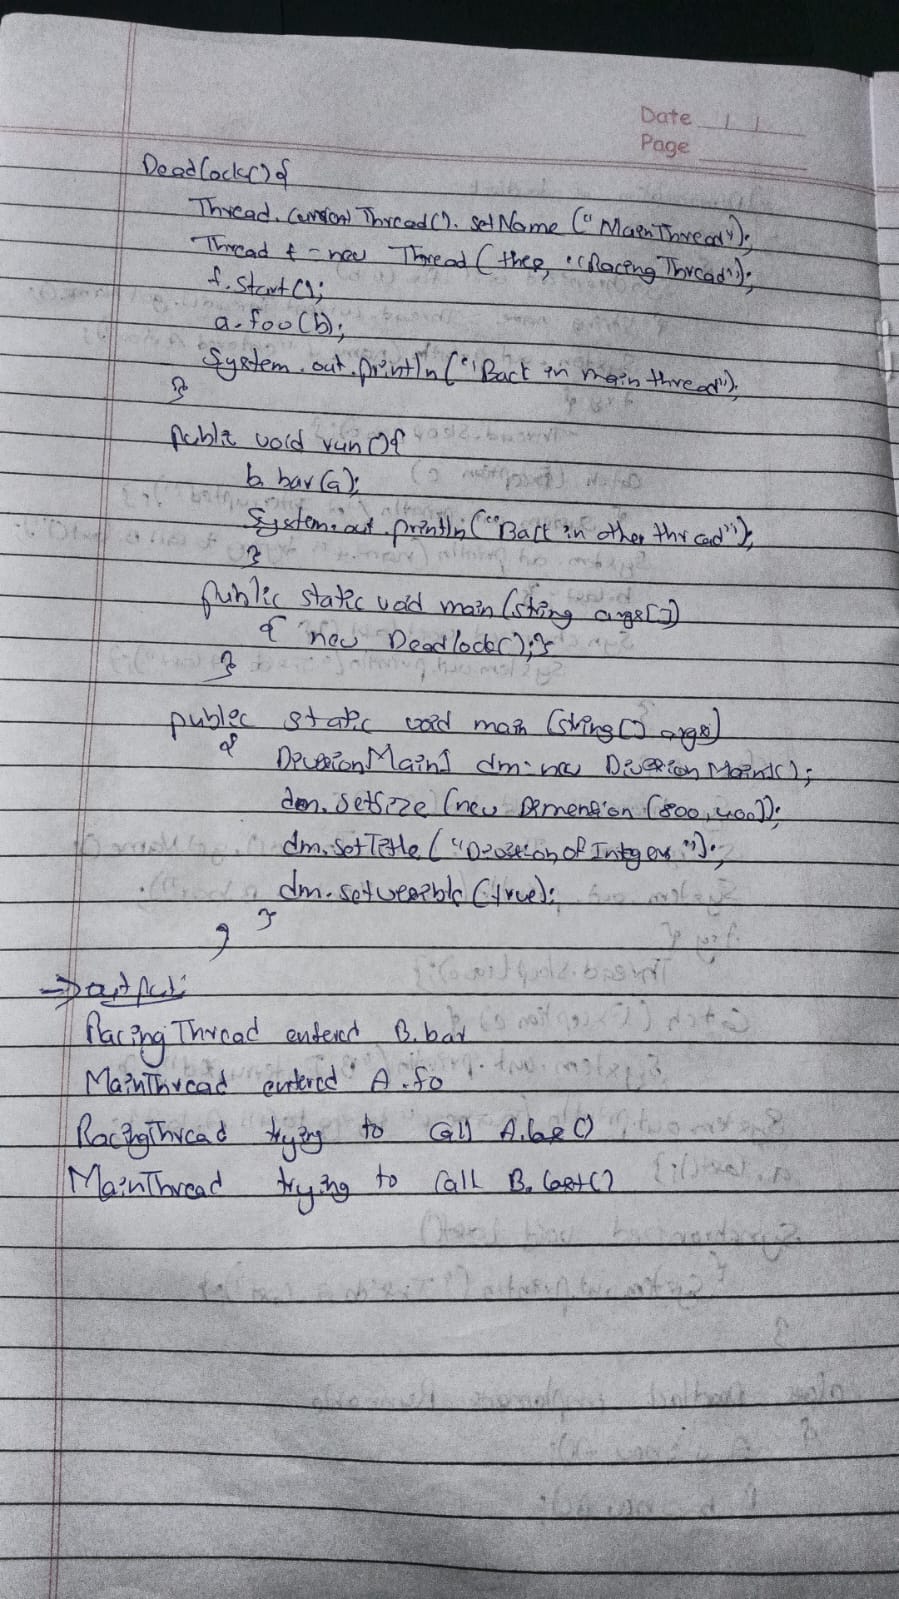 Date
Page
Deadlock() {
Thread. Current Thread(). setName ("MainThread");
Thread t = new Thread (this, "Racing Thread");
t. start ();
a. foo (b);
System. out. println ("Back in main thread");
}
public void run () {
b. bar (a);
System. out. println; ("Back in other thread");
}
public static void main (string args[])
{ new Deadlock(); }
}
public static void main (string[] args)
{ DivisionMain1 dm = new DivisionMain1();
dm. setsize (new Dimension (800, 400));
dm. setTitle ("Division of Integers");
dm. setvisible (true);
}
}
⇒ output:
Racing Thread entered B. bar
MainThread entered A. fo
RacingThread trying to call A.las ()
MainThread trying to call B. last()